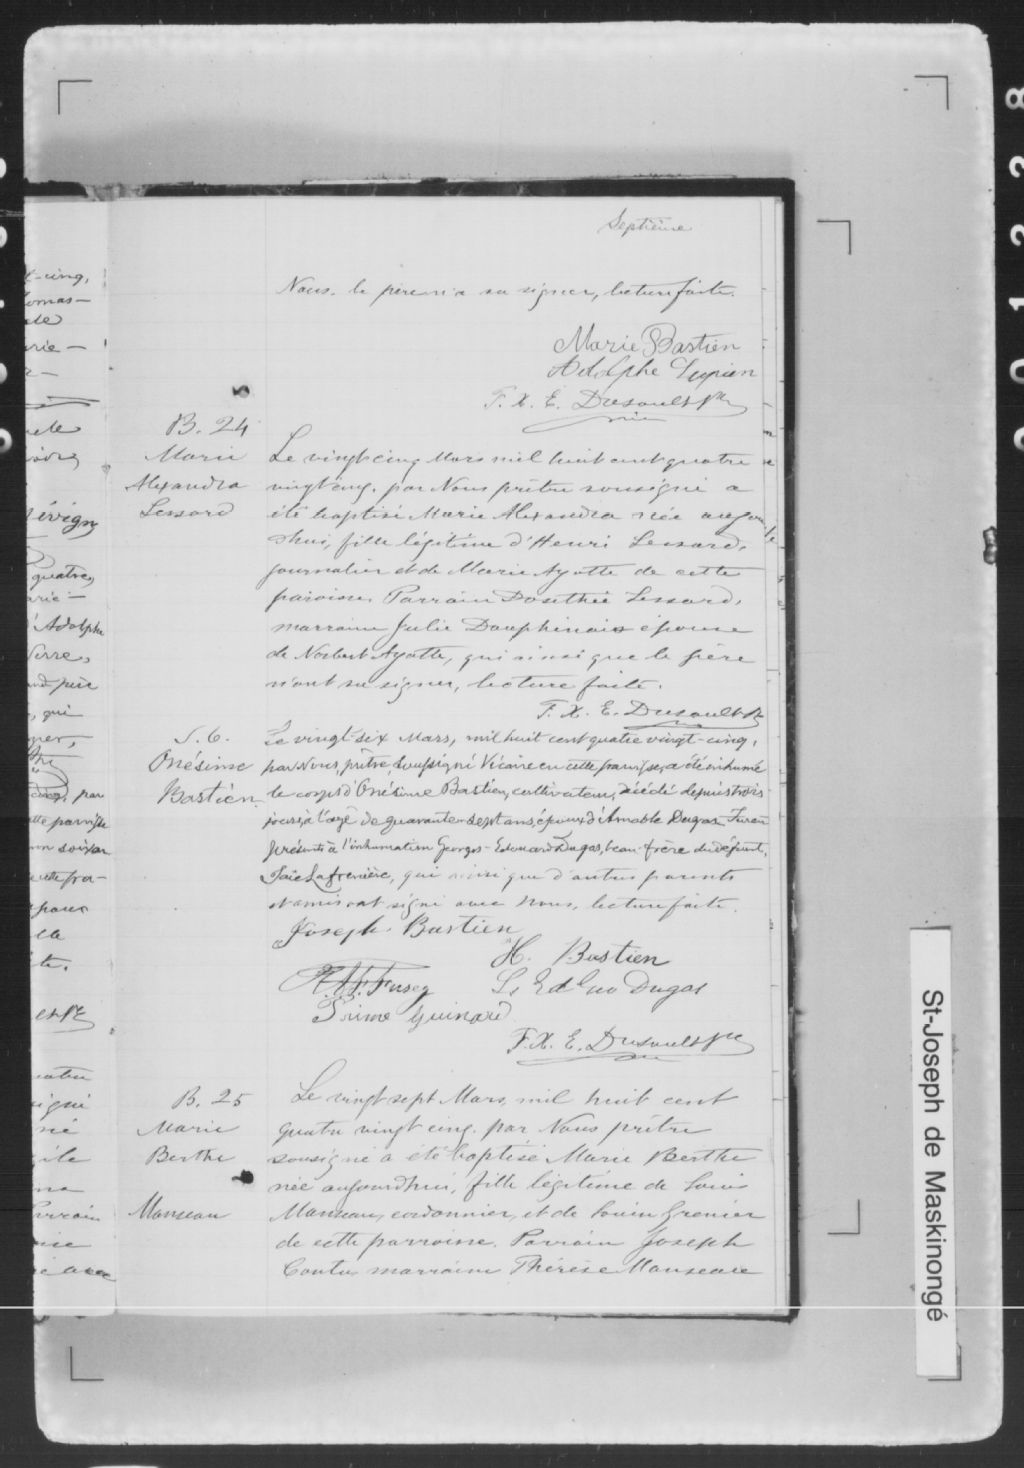 Septième
Nous. le père n'a su signer, lecture faite.
Marie Bastien
Adolphe Lupien
F. X. E. Dusault Ptre
B. 24
Marie
Alexandra
Lessard
Le vingt cinq Mars mil huit cent quatre
vingt cinq, par Nous prêtre soussigné a
été baptisé Marie Alexandra née aujour
d'hui, fille légitime d'Henri Lessard,
journalier et de Marie Ayotte de cette
paroisse. Parrain Dosithée Lessard,
marraine Julie Dauphinais épouse
de Norbert Ayotte, qui ainsi que le père
n'ont su signer, lecture faite.
F. X. E. Dusault Ptre
S. 6.
Onésime
Bastien
Le vingt-six Mars, mil huit cent quatre vingt-cinq,
par Nous, prêtre, soussigné Vicaire en cette paroisse, a été inhumé
le corps d'Onésime Bastien, cultivateur, décédé depuis trois
jours, à l'âge de quarante-sept ans, époux d'Amable Dugas. Furent
présents à l'inhumation Georges-Edouard Dugas, beau-frère du défunt,
Lafrenière, qui ainsi que d'autres parents
et amis ont signé avec nous, lecture faite.
Joseph Bastien
H. Bastien
Fusey
Ed Dugas
Prime Guinard
F. X. E. Dusault Ptre
B. 25
Marie
Berthe
Manseau
Le vingt sept Mars, mil huit cent
quatre vingt cinq, par Nous prêtre
soussigné a été baptisée Marie Berthe
née aujourd'hui, fille légitime de Louis
Manseau, cordonnier, et de Louise Grenier
de cette parroisse. Parrain Joseph
Coutu marraine Thérèse Manseau
St-Joseph de Maskinongé